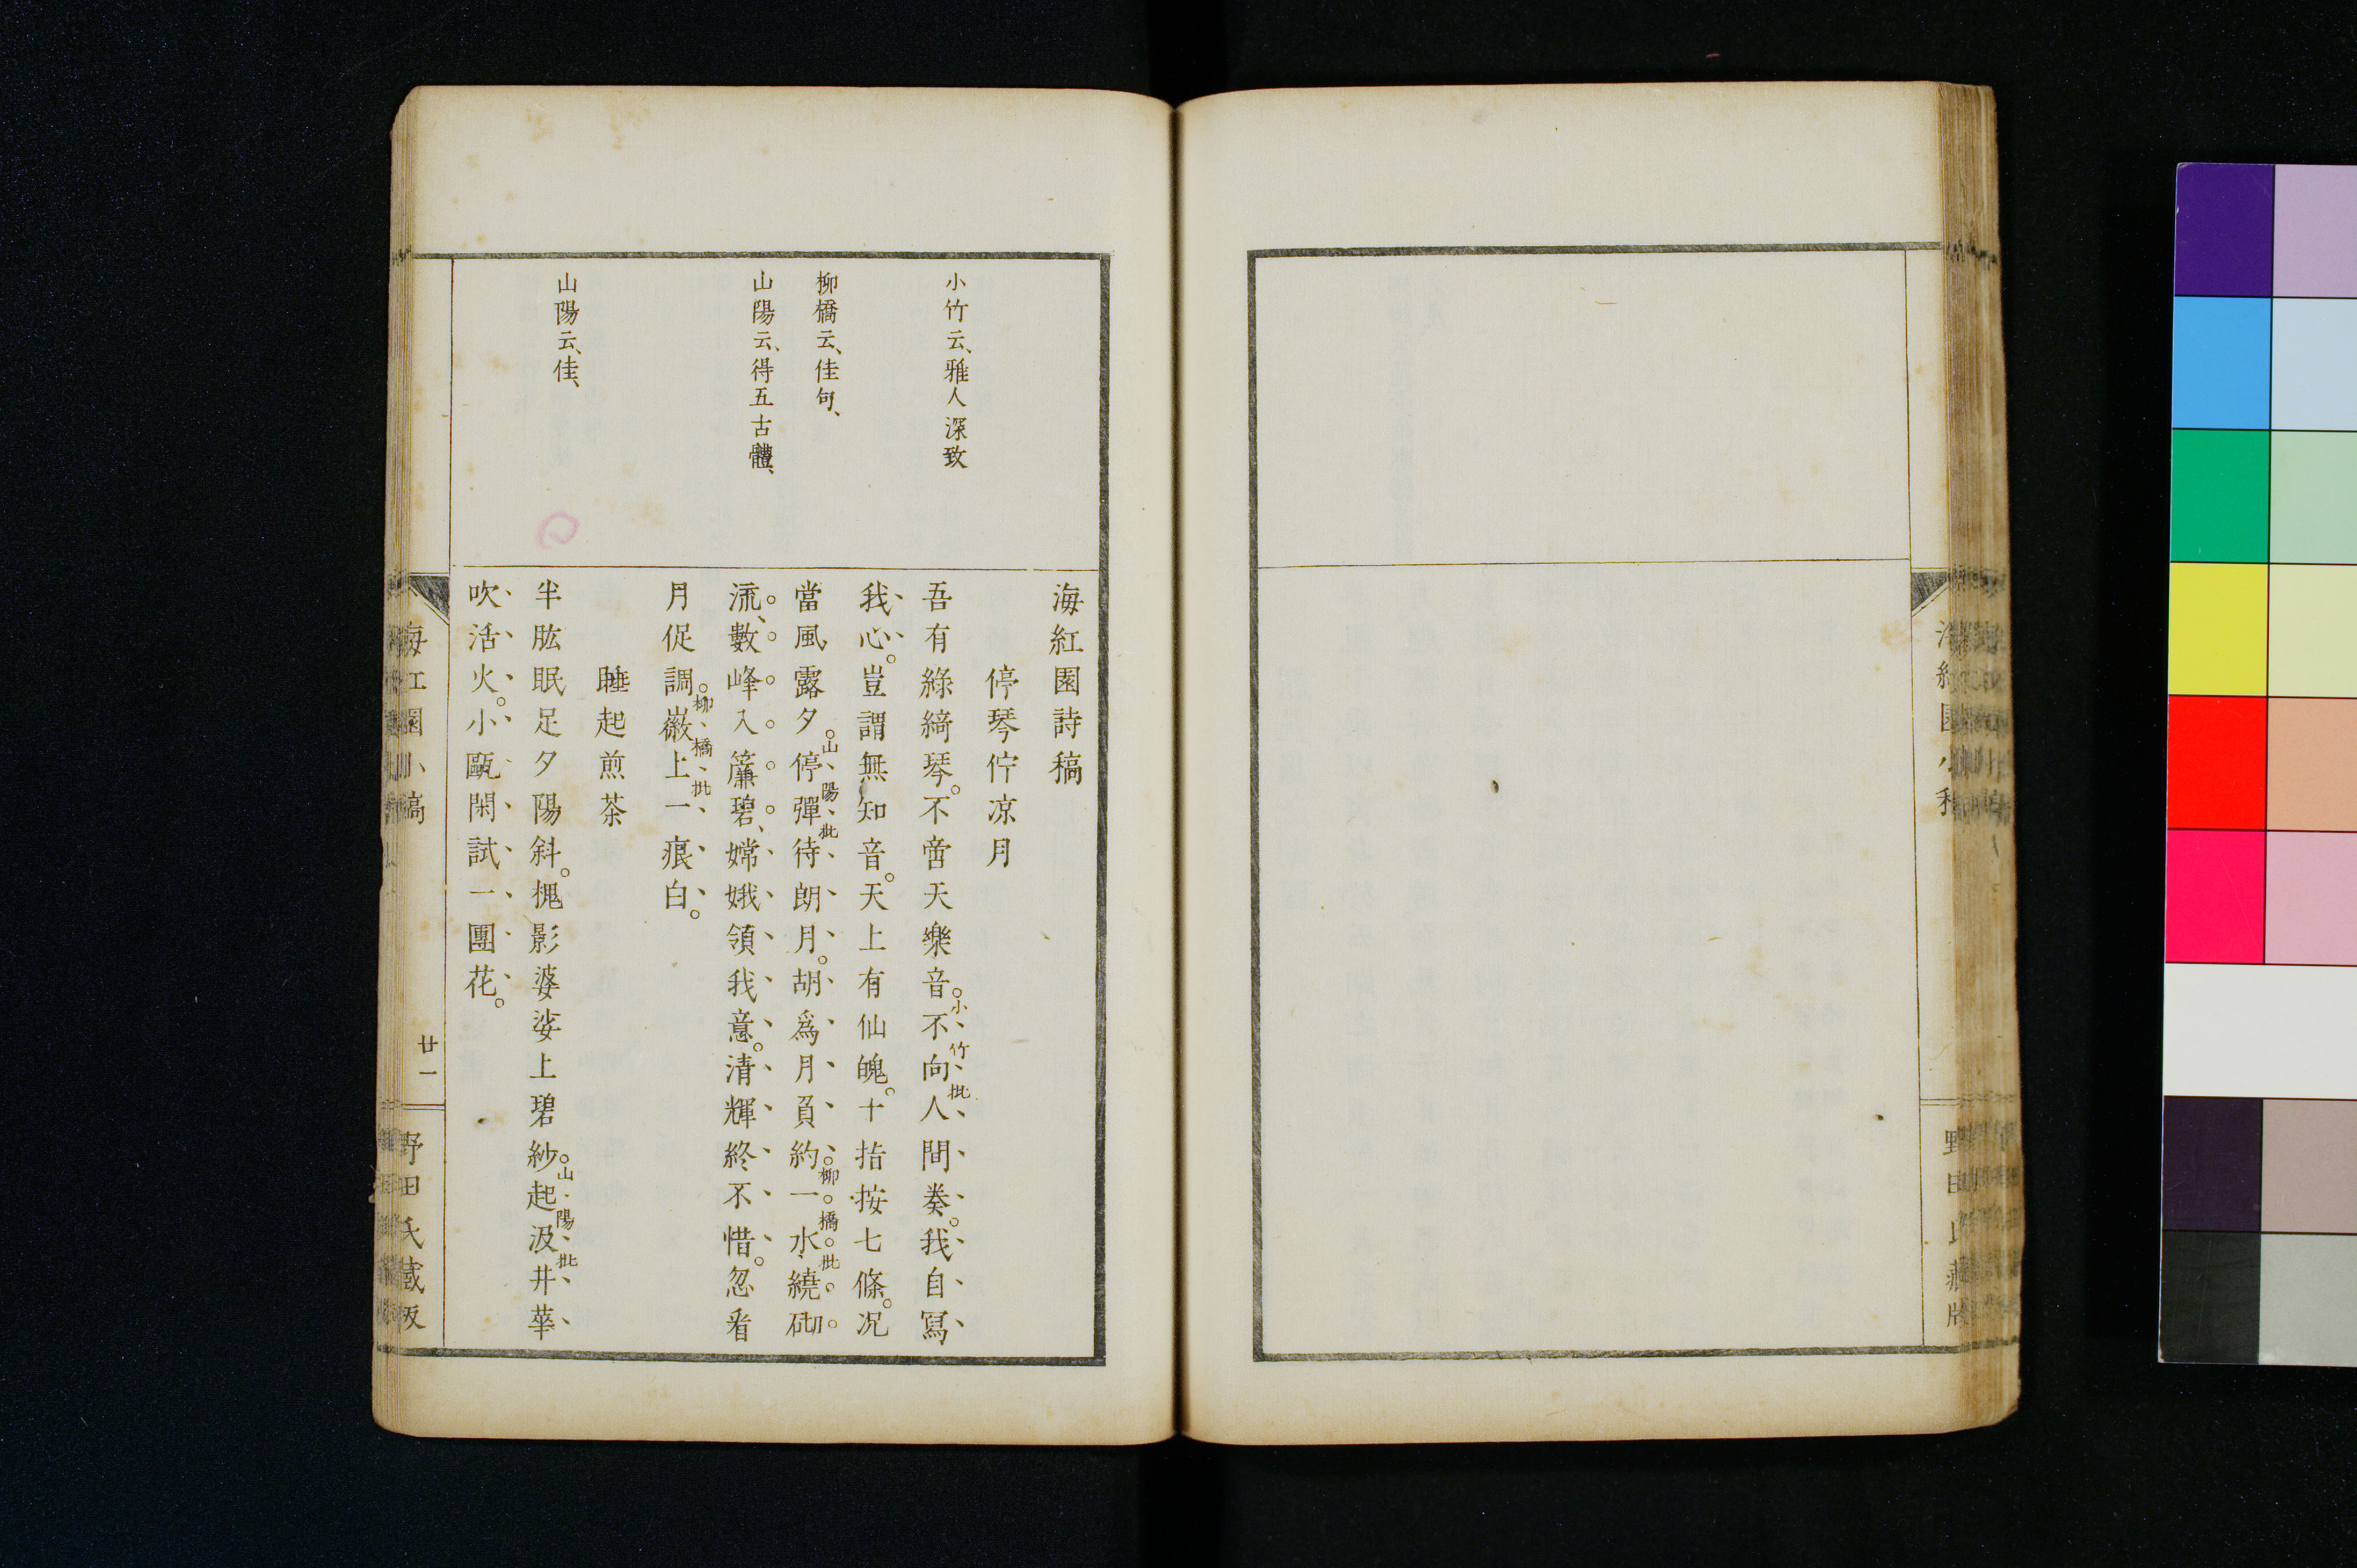 海紅園詩稿
停琴佇凉月
小竹云、雅人深致
吾有綠綺琴。不啻天樂音。不向人間奏。我自冩
小竹批
我心。豈謂無知音。天上有仙魄。十指按七條。况
柳橋云、佳句、
當風露夕停彈待朗月。胡爲月負約一水繞砌
山陽批
柳橋批
山陽云、得五古體、
流、數峰入簾碧、嫦娥領我意。清輝終不惜。忽看
月促調徽上一痕白。
柳橋批
睡起煎茶
山陽云、佳、
半肱眠足夕陽斜。槐影婆娑上碧紗。起汲井華
山陽批
吹活火。小甌閑試一團花。
海紅園小稿
廿一
野田氏藏版